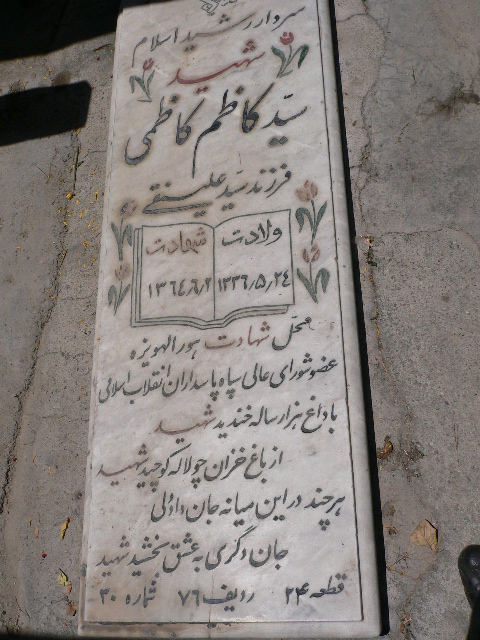 سردار رشید اسلام
شهید
سیّد کاظم کاظمی
فرزند سیّد علینقی
ولادت
۱۳۳۶٫۵٫۲۴
شهادت
۱۳۶۴٫۶٫۲
محل شهادت هورالهویزه
عضو شورای عالی سپاه پاسداران انقلاب اسلامی
با داغ هزار ساله خندید شهید
از باغ خزان چو لاله کوچید شهید
هر چند در این میانه جان داد ولی
جان دگری به عشق بخشید شهید
قطعه ۲۴ ردیف ۷۶ شماره ۳۰